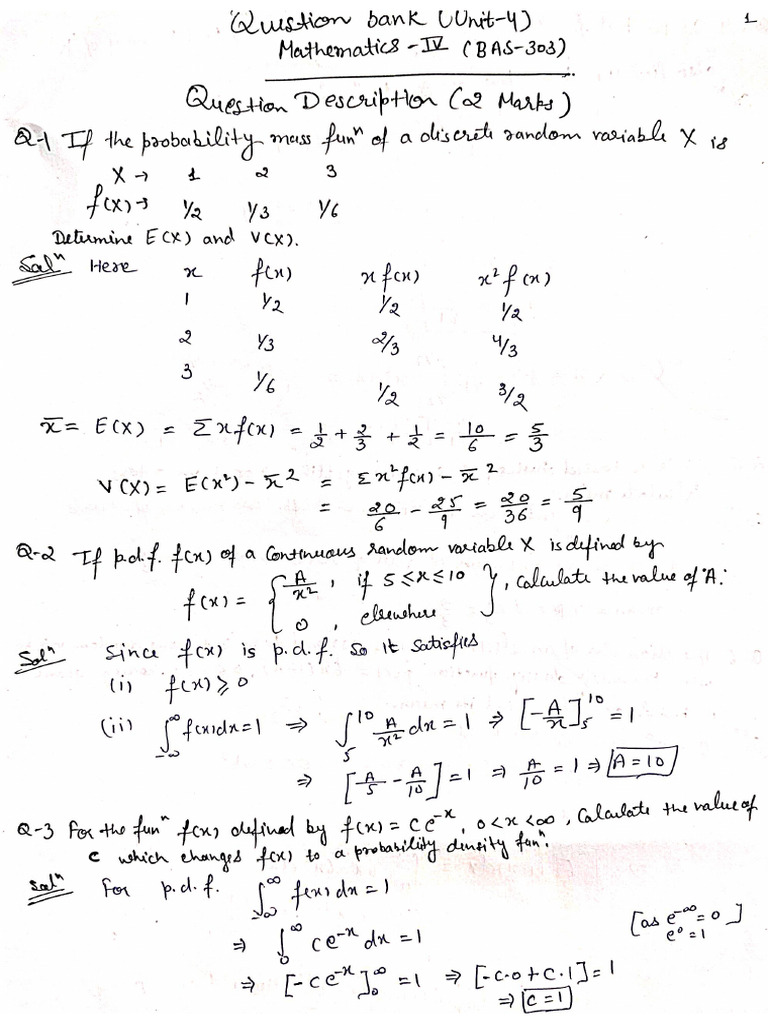 1
Question bank (Unit-4)
Mathematics - IV (BAS-303)
Question Description (2 Marks)
Q-1 If the probability mass funⁿ of a discrete random variable X is
X → 1 2 3
f(X) → 1/2 1/3 1/6
Determine E(X) and V(X).
Solⁿ Here x f(x) x f(x) x² f(x)
1 1/2 1/2 1/2
2 1/3 2/3 4/3
3 1/6 1/2 3/2
x̄ = E(X) = Σ x f(x) = 1/2 + 2/3 + 1/2 = 10/6 = 5/3
V(X) = E(x²) - x̄² = Σx²f(x) - x̄²
= 20/6 - 25/9 = 20/36 = 5/9
Q-2 If p.d.f. f(x) of a continuous random variable X is defined by
f(x) = { A/x² , if 5 ≤ x ≤ 10
0 , elsewhere } , calculate the value of 'A'.
Solⁿ Since f(x) is p.d.f. so it satisfies
(i) f(x) ≥ 0
(ii) ∫_{-∞}^{∞} f(x)dx = 1 ⇒ ∫_5^{10} A/x² dx = 1 ⇒ [-A/x]_5^{10} = 1
⇒ [A/5 - A/10] = 1 ⇒ A/10 = 1 ⇒ A = 10
Q-3 For the funⁿ f(x) defined by f(x) = c e^{-x}, 0 < x < ∞, Calculate the value of
c which changes f(x) to a probability density funⁿ.
Solⁿ For p.d.f. ∫_{-∞}^{∞} f(x) dx = 1
⇒ ∫_0^{∞} c e^{-x} dx = 1 [as e^{-∞} = 0
e⁰ = 1]
⇒ [-c e^{-x}]_0^{∞} = 1 ⇒ [-c·0 + c·1] = 1
⇒ c = 1